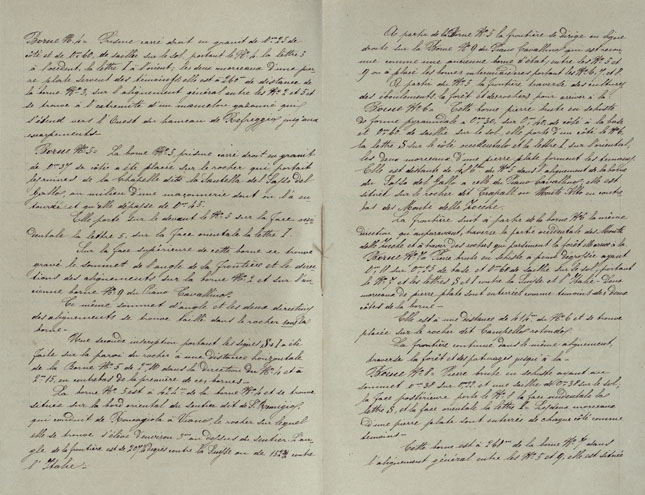 Borne Nº 4 = Prisme carré droit en granit de 0m25 de
côté et de 0m60, de saillie sur le sol, portant le Nº 4 la lettre S
à l'occident, la lettre I à l'orient, les deux morceaux d'une pier
re plate servent des témoins elle est à 260m de distance de
la borne Nº 3, sur l'alignement général entre les Nº 2 et 5 et
se trouve à l'extrémité d'un mamelon gazonné qui
s'étend vers l'Ouest du hameau de jusqu'aux
escarpements.
Borne Nº 5 = La borne Nº 5, prisme carré droit en granit
de 0m37 de côté a été placée sur le rocher qui portait
les ruines de la Chapelle dite la Santella del Sasso del
Gallo, au milieu d'une maçonnerie dont on l'a en
tourée et qu'elle dépasse de 0m45.
Elle porte sur le devant le Nº 5 sur la face occi
dentale la lettre S. sur la face orientale la lettre I.
Sur la face supérieure de cette borne se trouve
gravé le sommet de l'angle de la frontière et le direc
tions des alignements sur la borne Nº 2 et sur l'an
cienne borne Nº 9 du Piano Cavallino.
Ce même sommet d'angle et les deux directions
des alignements se trouve taillé dans le rocher sous la
borne =
Une seconde inscription portant les signes S et I a été
faite sur la paroi du rocher à une distance horizontale
de la Borne Nº 5 de dans la direction du Nº 4 et à
2m15, en contrebas de la première de ces bornes =
La borne Nº 5 est à de la borne Nº 4 et se trouve
située sur le bord oriental du sentier dit de
qui conduit de à le rocher sur lequel
elle se trouve s'élève d'environ au dessus du sentier. L'an
gle de la frontière est de degrés contre la Suisse ou de contre
l'Italie =
A partir de la Borne Nº 5 la frontière se dirige en ligne
droite sur la Borne Nº 9 du Piano Cavallino qui est recon
nue comme une ancienne borne d'état, entre les Nº 5 et
9 on a placé les bornes intermédiaires portant les Nº 6, 7, et 8.
A partir du Nº 5 la frontière, traverse des cultures
des éboulements, la forêt et descend pour arriver à la
Borne Nº 6 = Cette borne pierre brute en schiste
de forme pyramidale a 0m30, sur 0m60, de côté à la base
et 0m60 de saillie sur le sol, elle porte d'un côté le Nº 6,
la lettre S sur le côté occidental et la lettre I sur l'oriental,
les deux morceaux d'une pierre plate forment les témoins.
Elle est distante de du Nº 5 dans l'alignement de la borne
du Sasso del Gallo à celle du Piano Cavallino, elle est
située sur le rocher dit Monte Alto en contre
bas des Monte della
La frontière suit à partir de la borne Nº 6 la même
direction qu'auparavant, traverse la partie occidentale des Monte
della et à travers des rochers qui parsement la forêt arrive à la
Borne Nº 7 Pierre brute en schiste à peu dégrossie ayant
0m18 sur 0m33 de base et 0m60 de saillie sur le sol, portant
le Nº 7 et les lettres S et I contre la Suisse et l'Italie. Deux
morceaux de pierre plate sont enterrés comme témoins des deux
côtés de la borne =
Elle est à une distance de du Nº 6 et se trouve
placée sur le rocher dit rotondo.
La frontière continue dans le même alignement,
traverse la forêt et des pâturages jusqu'à la =
Borne Nº 8. Pierre brute en schiste ayant au
sommet 0m38 sur 0m22 et une saillie de 0m38 sur le sol,
la face postérieure porte le Nº 8 la face occidentale la
lettre S, et la face orientale la lettre I. Les deux morceaux
d'une pierre plate sont enterrés de chaque côté comme
témoins =
Cette borne est à 268m de la borne Nº 7 dans
l'alignement général entre les Nº 5 et 9, elle est située